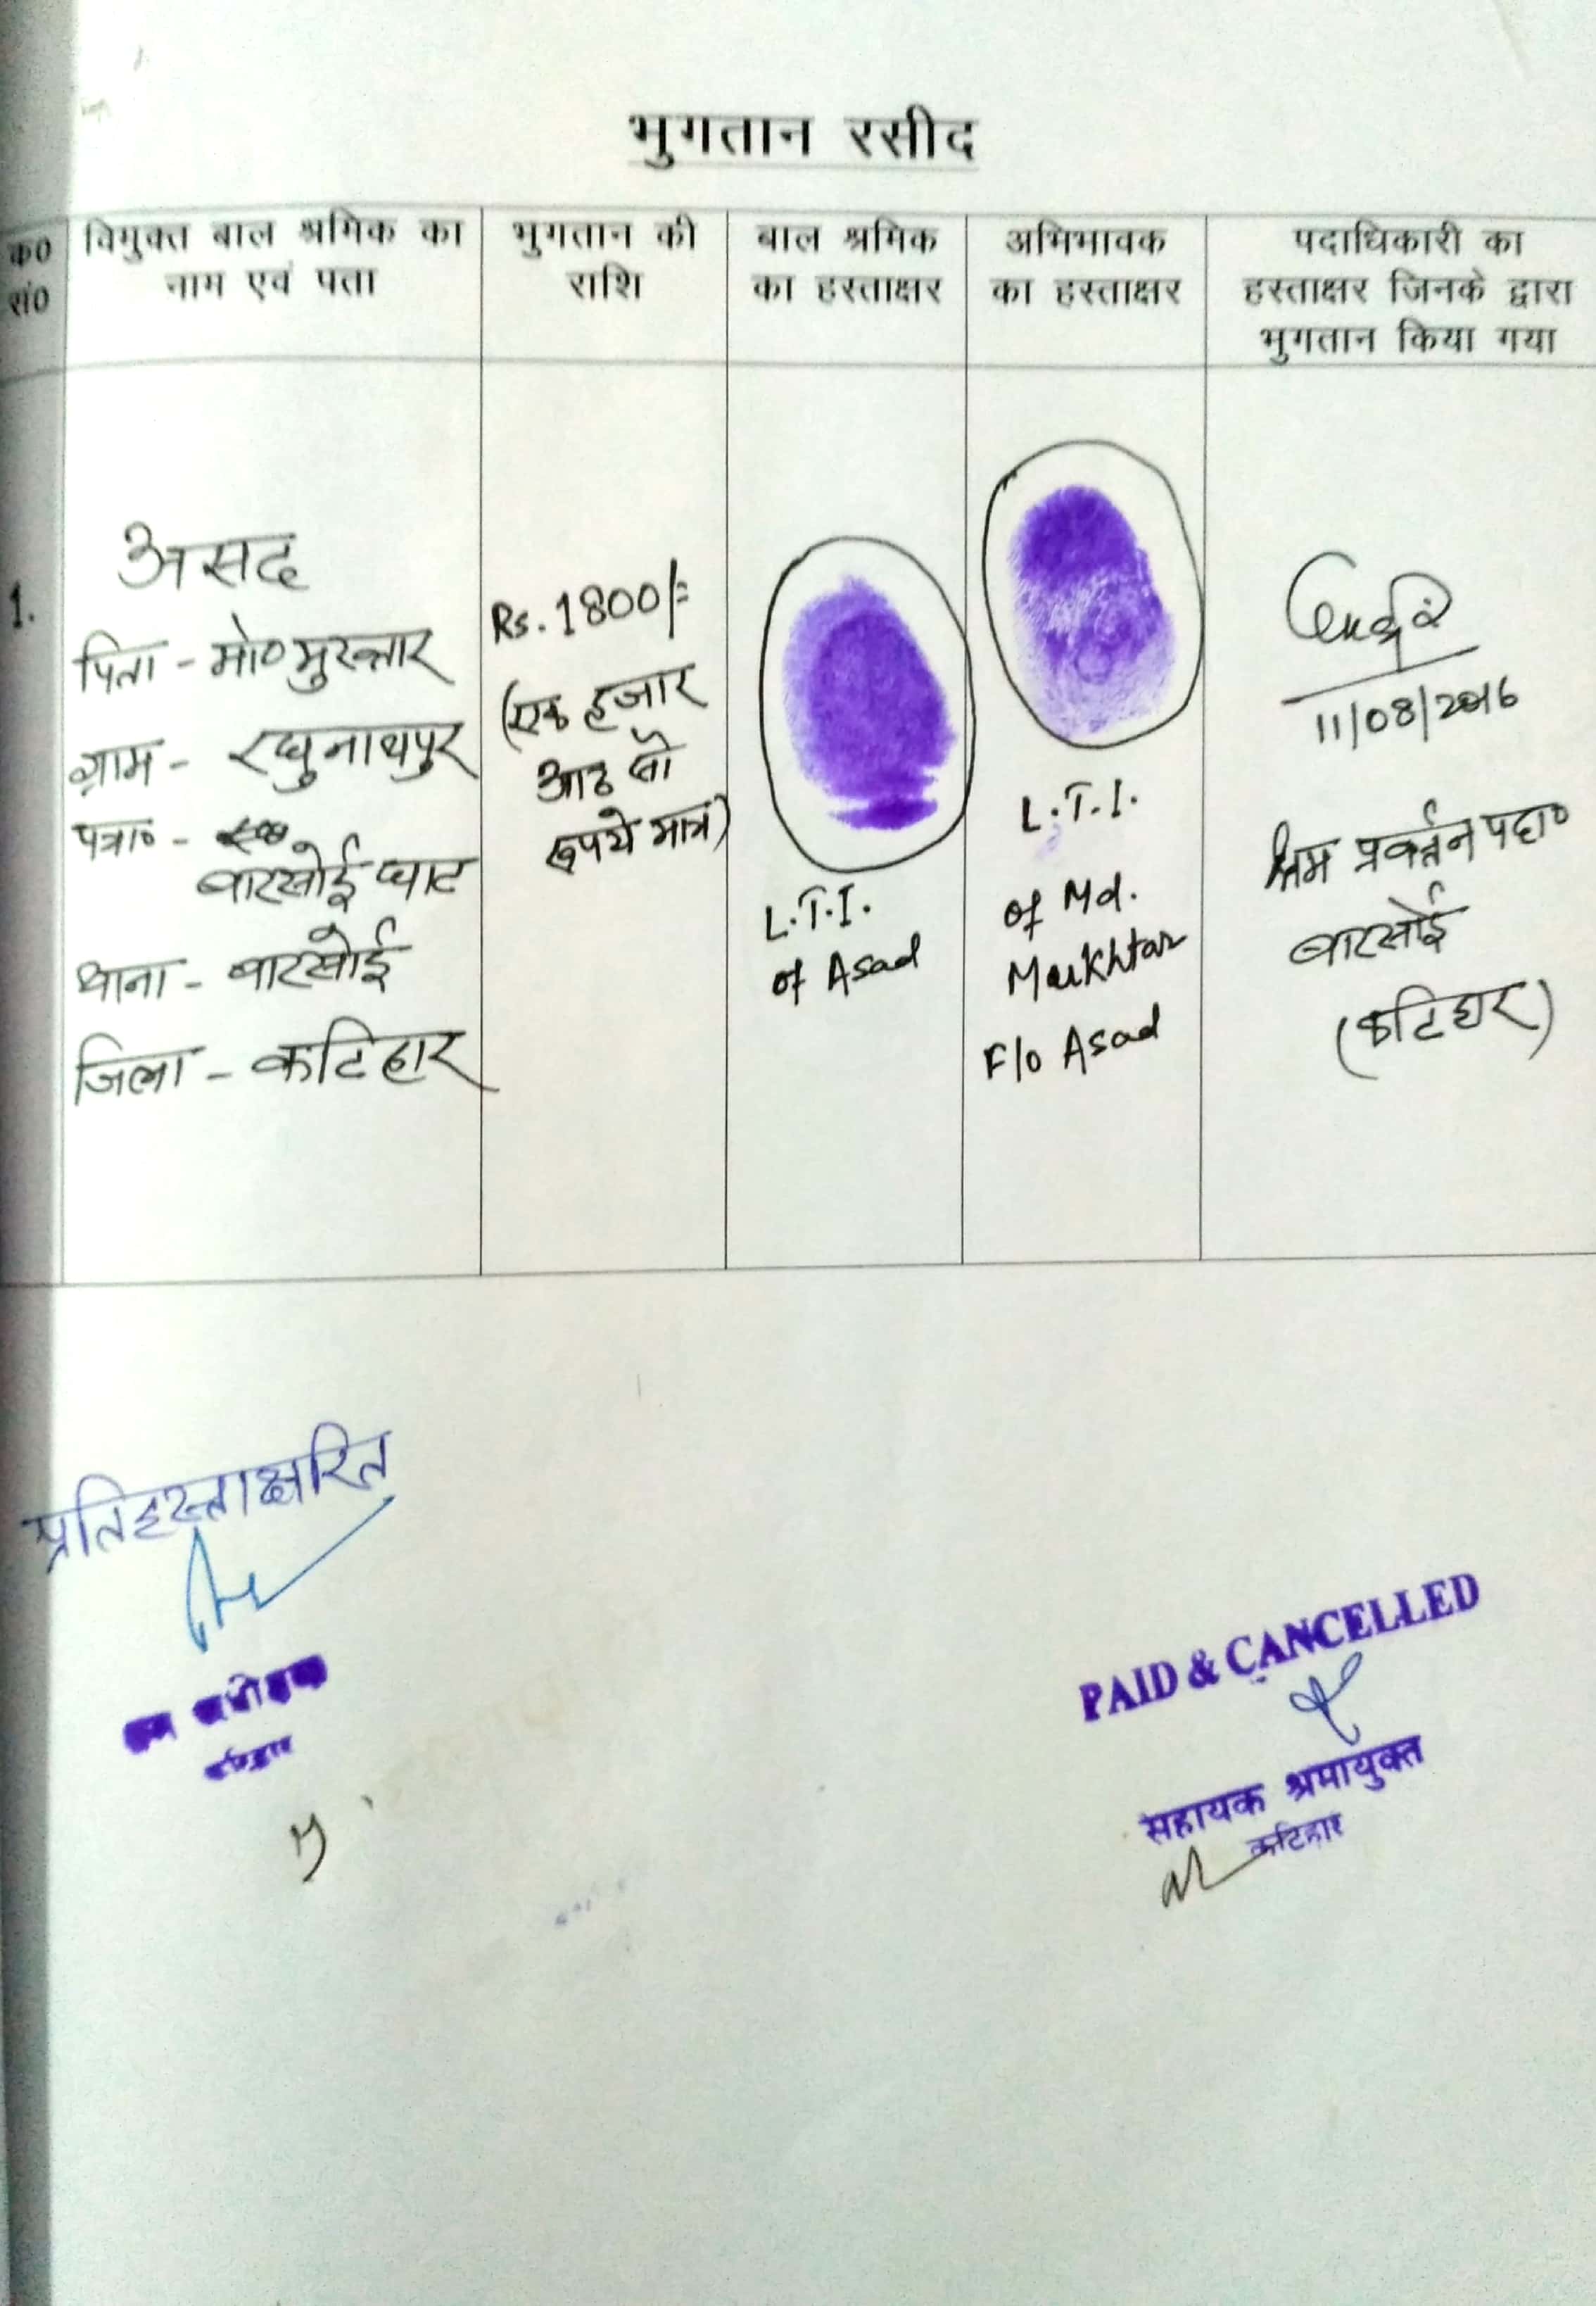 भुगतान रसीद
क० सं०
विमुक्त बाल श्रमिक का
नाम एवं पता
भुगतान की
राशि
बाल श्रमिक
का हस्ताक्षर
अभिभावक
का हस्ताक्षर
पदाधिकारी का
हस्ताक्षर जिनके द्वारा
भुगतान किया गया
1.
असद
पिता - मो० मुख्तार
ग्राम - रघुनाथपुर
पत्रा० -
बारसोई घाट
थाना - बारसोई
जिला - कटिहार
Rs. 1800/=
(एक हजार
आठ सौ
रूपये मात्र)
L.T.I.
of Asad
L.T.I.
of Md.
Mukhtar
F/o Asad
11/08/2016
श्रम प्रवर्तन पदा०
बारसोई
(कटिहार)
प्रतिहस्ताक्षरित
कटिहार
PAID & CANCELLED
सहायक श्रमायुक्त
कटिहार